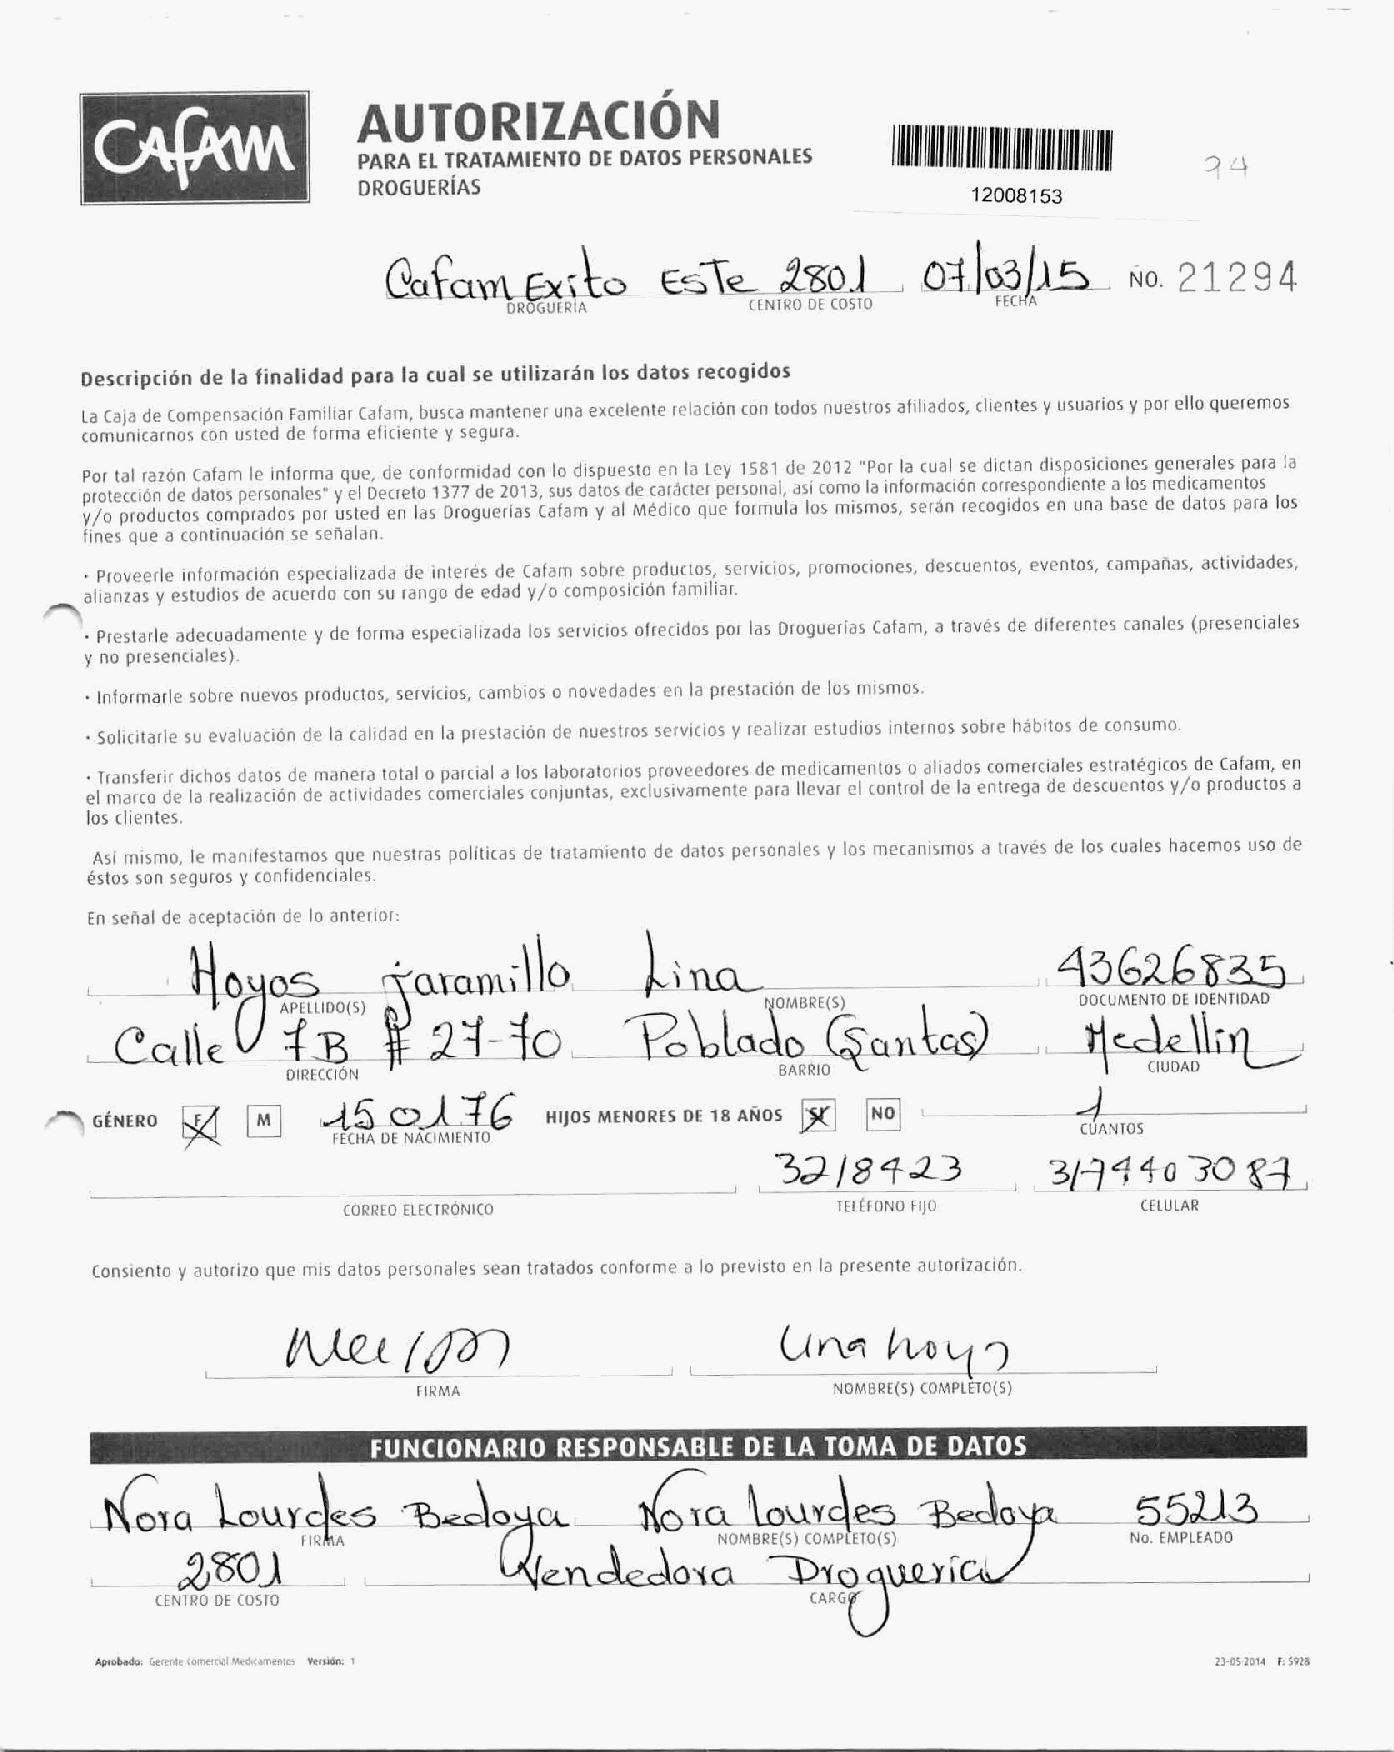 CAFAM
AUTORIZACIÓN
PARA EL TRATAMIENTO DE DATOS PERSONALES
DROGUERÍAS
12008153
94
Cafam Exito Este 2801 07/03/15 No. 21294
DROGUERÍA CENTRO DE COSTO FECHA
Descripción de la finalidad para la cual se utilizarán los datos recogidos
La Caja de Compensación Familiar Cafam, busca mantener una excelente relación con todos nuestros afiliados, clientes y usuarios y por ello queremos
comunicarnos con usted de forma eficiente y segura.
Por tal razón Cafam le informa que, de conformidad con lo dispuesto en la Ley 1581 de 2012 "Por la cual se dictan disposiciones generales para la
protección de datos personales" y el Decreto 1377 de 2013, sus datos de carácter personal, así como la información correspondiente a los medicamentos
y/o productos comprados por usted en las Droguerías Cafam y al Médico que formula los mismos, serán recogidos en una base de datos para los
fines que a continuación se señalan.
· Proveerle información especializada de interés de Cafam sobre productos, servicios, promociones, descuentos, eventos, campañas, actividades,
alianzas y estudios de acuerdo con su rango de edad y/o composición familiar.
· Prestarle adecuadamente y de forma especializada los servicios ofrecidos por las Droguerías Cafam, a través de diferentes canales (presenciales
y no presenciales).
· Informarle sobre nuevos productos, servicios, cambios o novedades en la prestación de los mismos.
· Solicitarle su evaluación de la calidad en la prestación de nuestros servicios y realizar estudios internos sobre hábitos de consumo.
· Transferir dichos datos de manera total o parcial a los laboratorios proveedores de medicamentos o aliados comerciales estratégicos de Cafam, en
el marco de la realización de actividades comerciales conjuntas, exclusivamente para llevar el control de la entrega de descuentos y/o productos a
los clientes.
Así mismo, le manifestamos que nuestras políticas de tratamiento de datos personales y los mecanismos a través de los cuales hacemos uso de
éstos son seguros y confidenciales.
En señal de aceptación de lo anterior:
Hoyos jaramillo Lina 43626835
APELLIDO(S) NOMBRE(S) DOCUMENTO DE IDENTIDAD
Calle 7B # 27-70 Poblado (Santas) Medellin
DIRECCIÓN BARRIO CIUDAD
GÉNERO F M 150176 HIJOS MENORES DE 18 AÑOS SI NO 1
FECHA DE NACIMIENTO CUÁNTOS
3218423 3174403087
CORREO ELECTRÓNICO TELÉFONO FIJO CELULAR
Consiento y autorizo que mis datos personales sean tratados conforme a lo previsto en la presente autorización.
Lina hoyos
FIRMA NOMBRE(S) COMPLETO(S)
FUNCIONARIO RESPONSABLE DE LA TOMA DE DATOS
Nora Lourdes Bedoya Nora Lourdes Bedoya 55213
FIRMA NOMBRE(S) COMPLETO(S) No. EMPLEADO
2801 Vendedora Drogueria
CENTRO DE COSTO CARGO
Aprobado: Gerente Comercial Medicamentos Versión: 1 23-05-2014 F: 5928